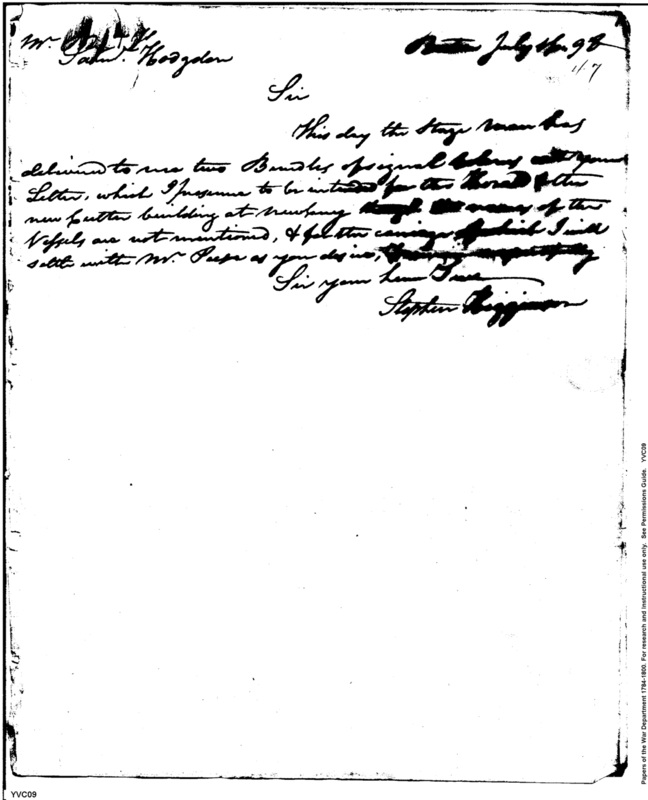 Mr. Saml. Hodgdon
Boston July 98
147
Sir
This day the Stage man has
delivered to me two Bundles of signal Colours with your
Letter, which I presume to be intended for the Herald & the
new Cutter building at Newbury though the names of the
Vessels are not mentioned, & for the carriage of which I will
settle with Mr. Peeps as you desire,
Sir your hum
Stephen Higginson
Papers of the War Department 1784-1800. For research and instructional use only. See Permissions Guide. YVC09
YVC09